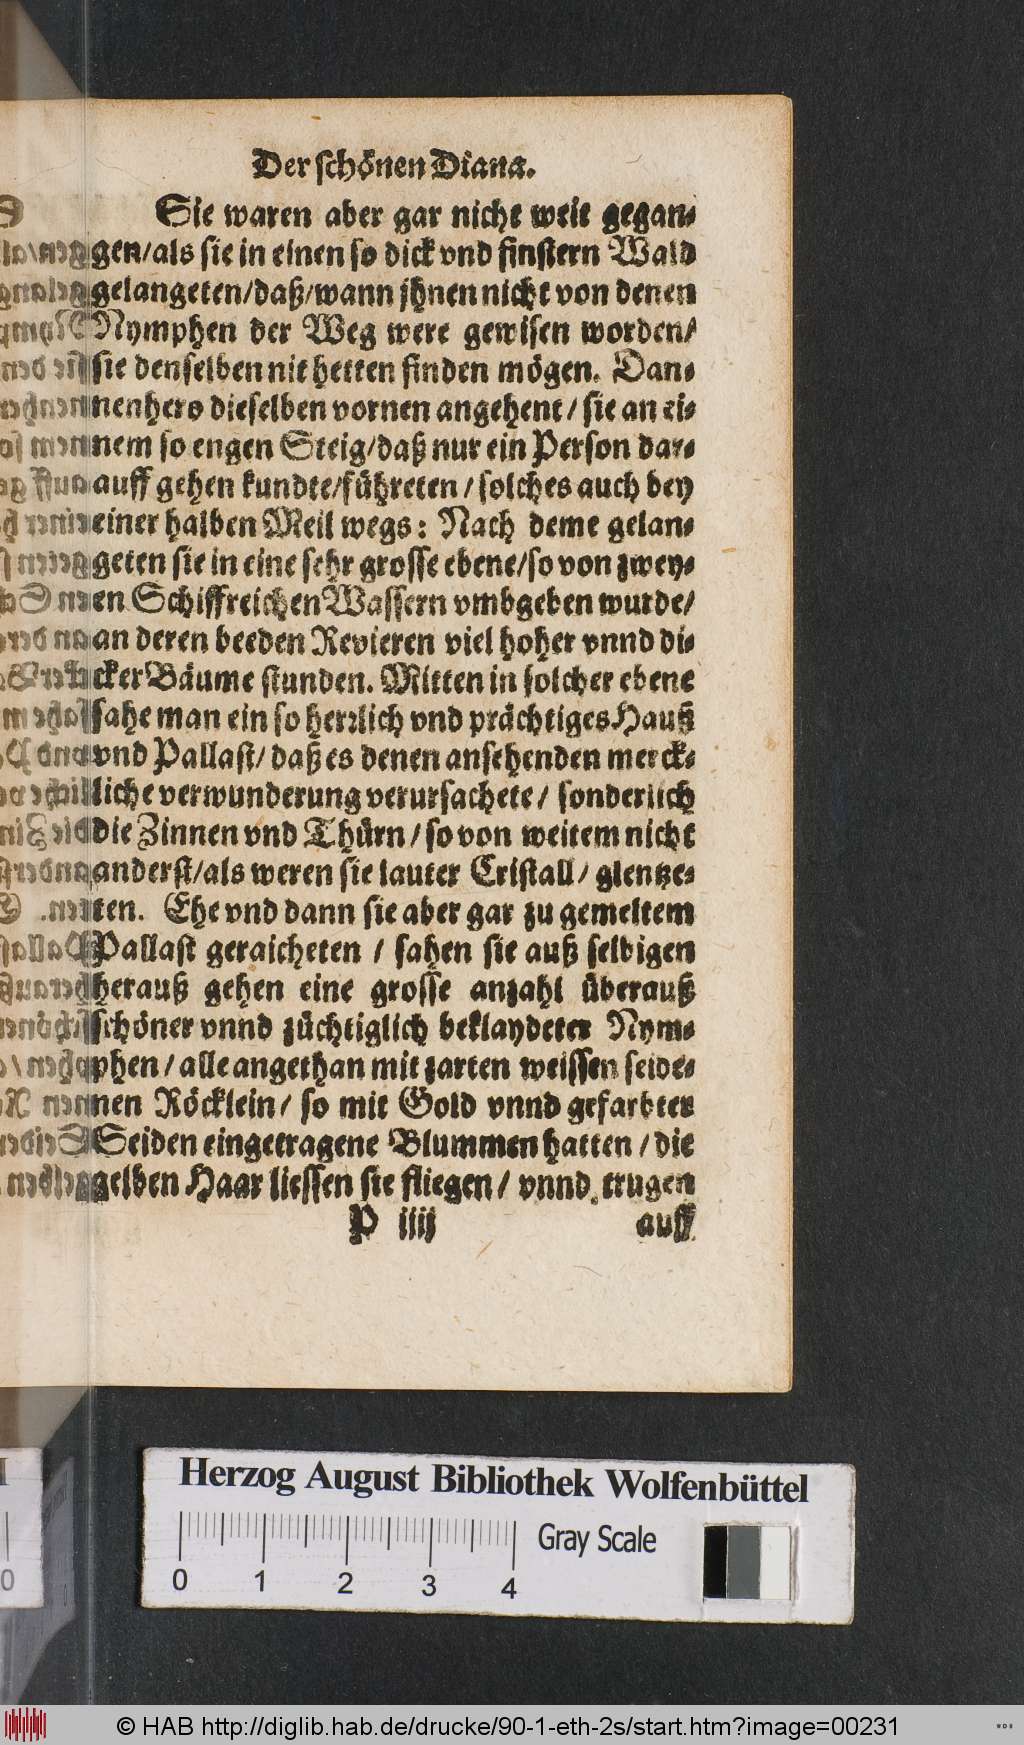 Der schönen Diana.
Sie waren aber gar nicht weit gegan-
gen/als sie in einen so dick vnd finstern Wald
gelangeten/daß/wann jhnen nicht von denen
Nymphen der Weg were gewisen worden/
sie denselben nit hetten finden mögen. Dan-
nenhero dieselben vornen angehent/ sie an ei-
nem so engen Steig/daß nur ein Person dar-
auff gehen kundte/führeten/solches auch bey
einer halben Meil wegs: Nach deme gelan-
geten sie in eine sehr grosse ebene/so von zwey-
en Schiffreichen Wassern vmbgeben wurde/
an deren beeden Revieren viel hoher vnnd di-
cker Bäume stunden. Mitten in solcher ebene
sahe man ein so herrlich vnd prächtiges Hauß
vnd Pallast/ daß es denen ansehenden merck-
liche verwunderung verursachete/ sonderlich
die Zinnen vnd Thürn/so von weitem nicht
anderst/als weren sie lauter Cristall/ glentze-
ten. Ehe vnd dann sie aber gar zu gemeltem
Pallast geraicheten / sahen sie auß selbigen
herauß gehen eine grosse anzahl überauß
schöner vnnd züchtiglich beklaydeter Nym-
phen/ alle angethan mit zarten weissen seide-
nen Röcklein/ so mit Gold vnnd gefarbter
Seiden eingetragene Blummen hatten / die
gelben Haar liessen sie fliegen/ vnnd trugen
P iiij auff
Herzog August Bibliothek Wolfenbüttel
Gray Scale
0 1 2 3 4
© HAB http://diglib.hab.de/drucke/90-1-eth-2s/start.htm?image=00231